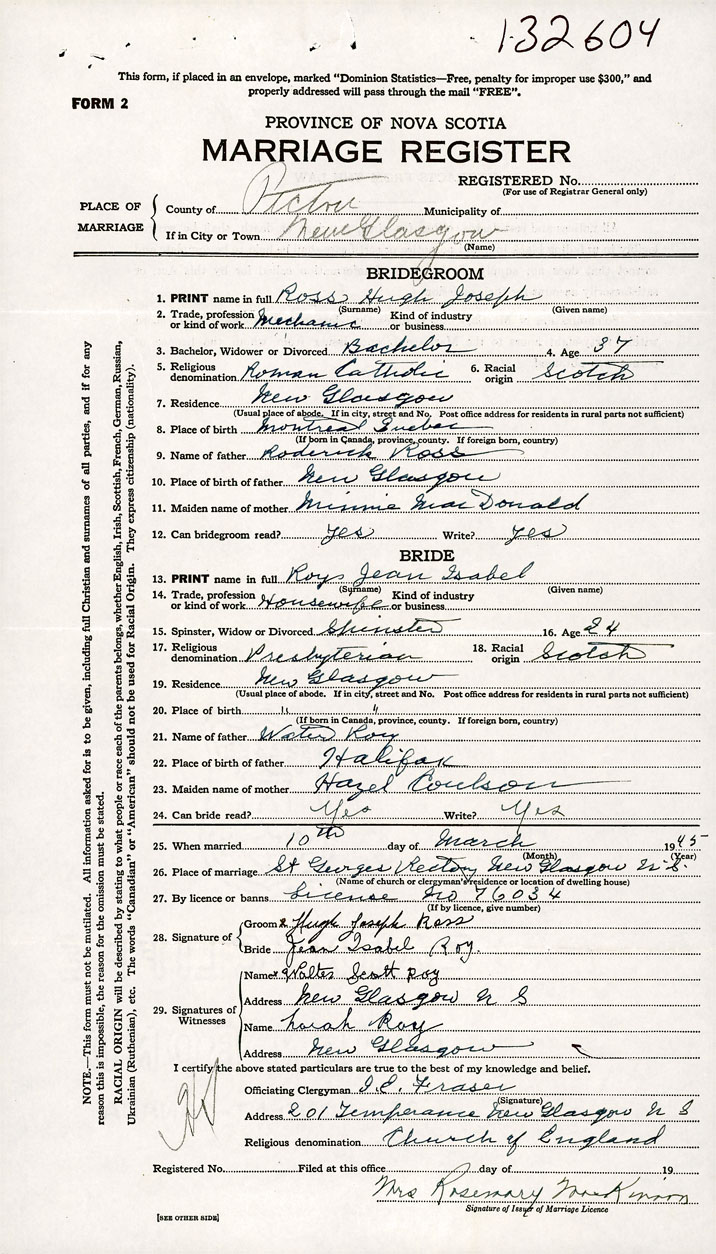 132604
This form, if placed in an envelope, marked "Dominion Statistics—Free, penalty for improper use $300," and
properly addressed will pass through the mail "FREE".
FORM 2
PROVINCE OF NOVA SCOTIA
MARRIAGE REGISTER
REGISTERED No.
(For use of Registrar General only)
PLACE OF MARRIAGE
County of Pictou Municipality of
If in City or Town New Glasgow
(Name)
BRIDEGROOM
1. PRINT name in full Ross Hugh Joseph
(Surname) (Given name)
2. Trade, profession or kind of work Mechanic Kind of industry or business
3. Bachelor, Widower or Divorced Bachelor 4. Age 37
5. Religious denomination Roman Catholic 6. Racial origin Scotch
7. Residence New Glasgow
(Usual place of abode. If in city, street and No. Post office address for residents in rural parts not sufficient)
8. Place of birth Montreal Quebec
(If born in Canada, province, county. If foreign born, country)
9. Name of father Roderick Ross
10. Place of birth of father New Glasgow
11. Maiden name of mother Minnie MacDonald
12. Can bridegroom read? yes Write? yes
BRIDE
13. PRINT name in full Roy Jean Isabel
(Surname) (Given name)
14. Trade, profession or kind of work Housewife Kind of industry or business
15. Spinster, Widow or Divorced Spinster 16. Age 24
17. Religious denomination Presbyterian 18. Racial origin Scotch
19. Residence New Glasgow
(Usual place of abode. If in city, street and No. Post office address for residents in rural parts not sufficient)
20. Place of birth " "
(If born in Canada, province, county. If foreign born, country)
21. Name of father Walter Roy
22. Place of birth of father Halifax
23. Maiden name of mother Hazel Coulson
24. Can bride read? Yes Write? Yes
25. When married 10th day of March 1945
(Month) (Year)
26. Place of marriage St Georges Rectory New Glasgow N.S.
(Name of church or clergyman's residence or location of dwelling house)
27. By licence or banns License No 76034
(If by licence, give number)
28. Signature of
Groom x Hugh Joseph Ross
Bride Jean Isabel Roy.
29. Signatures of Witnesses
Name x Walter Scott Roy
Address New Glasgow N S
Name Norah Roy
Address New Glasgow
I certify the above stated particulars are true to the best of my knowledge and belief.
Officiating Clergyman I.E. Fraser
(Signature)
Address 201 Temperance New Glasgow N S
Religious denomination Church of England
Registered No. Filed at this office day of 19
Mrs Rosemary MacKinnon
Signature of Issuer of Marriage Licence
[SEE OTHER SIDE]
NOTE.—This form must not be mutilated. All information asked for is to be given, including full Christian and surnames of all parties, and if for any
reason this is impossible, the reason for the omission must be stated.
RACIAL ORIGIN will be described by stating to what people or race each of the parents belongs, whether English, Irish, Scottish, French, German, Russian,
Ukrainian (Ruthenian), etc. The words "Canadian" or "American" should not be used for Racial Origin. They express citizenship (nationality).